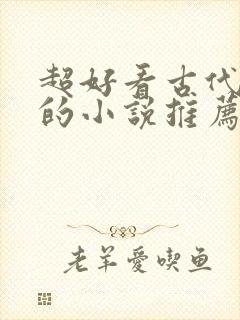 超好看古代
的小說推薦
老羊愛喫鱼